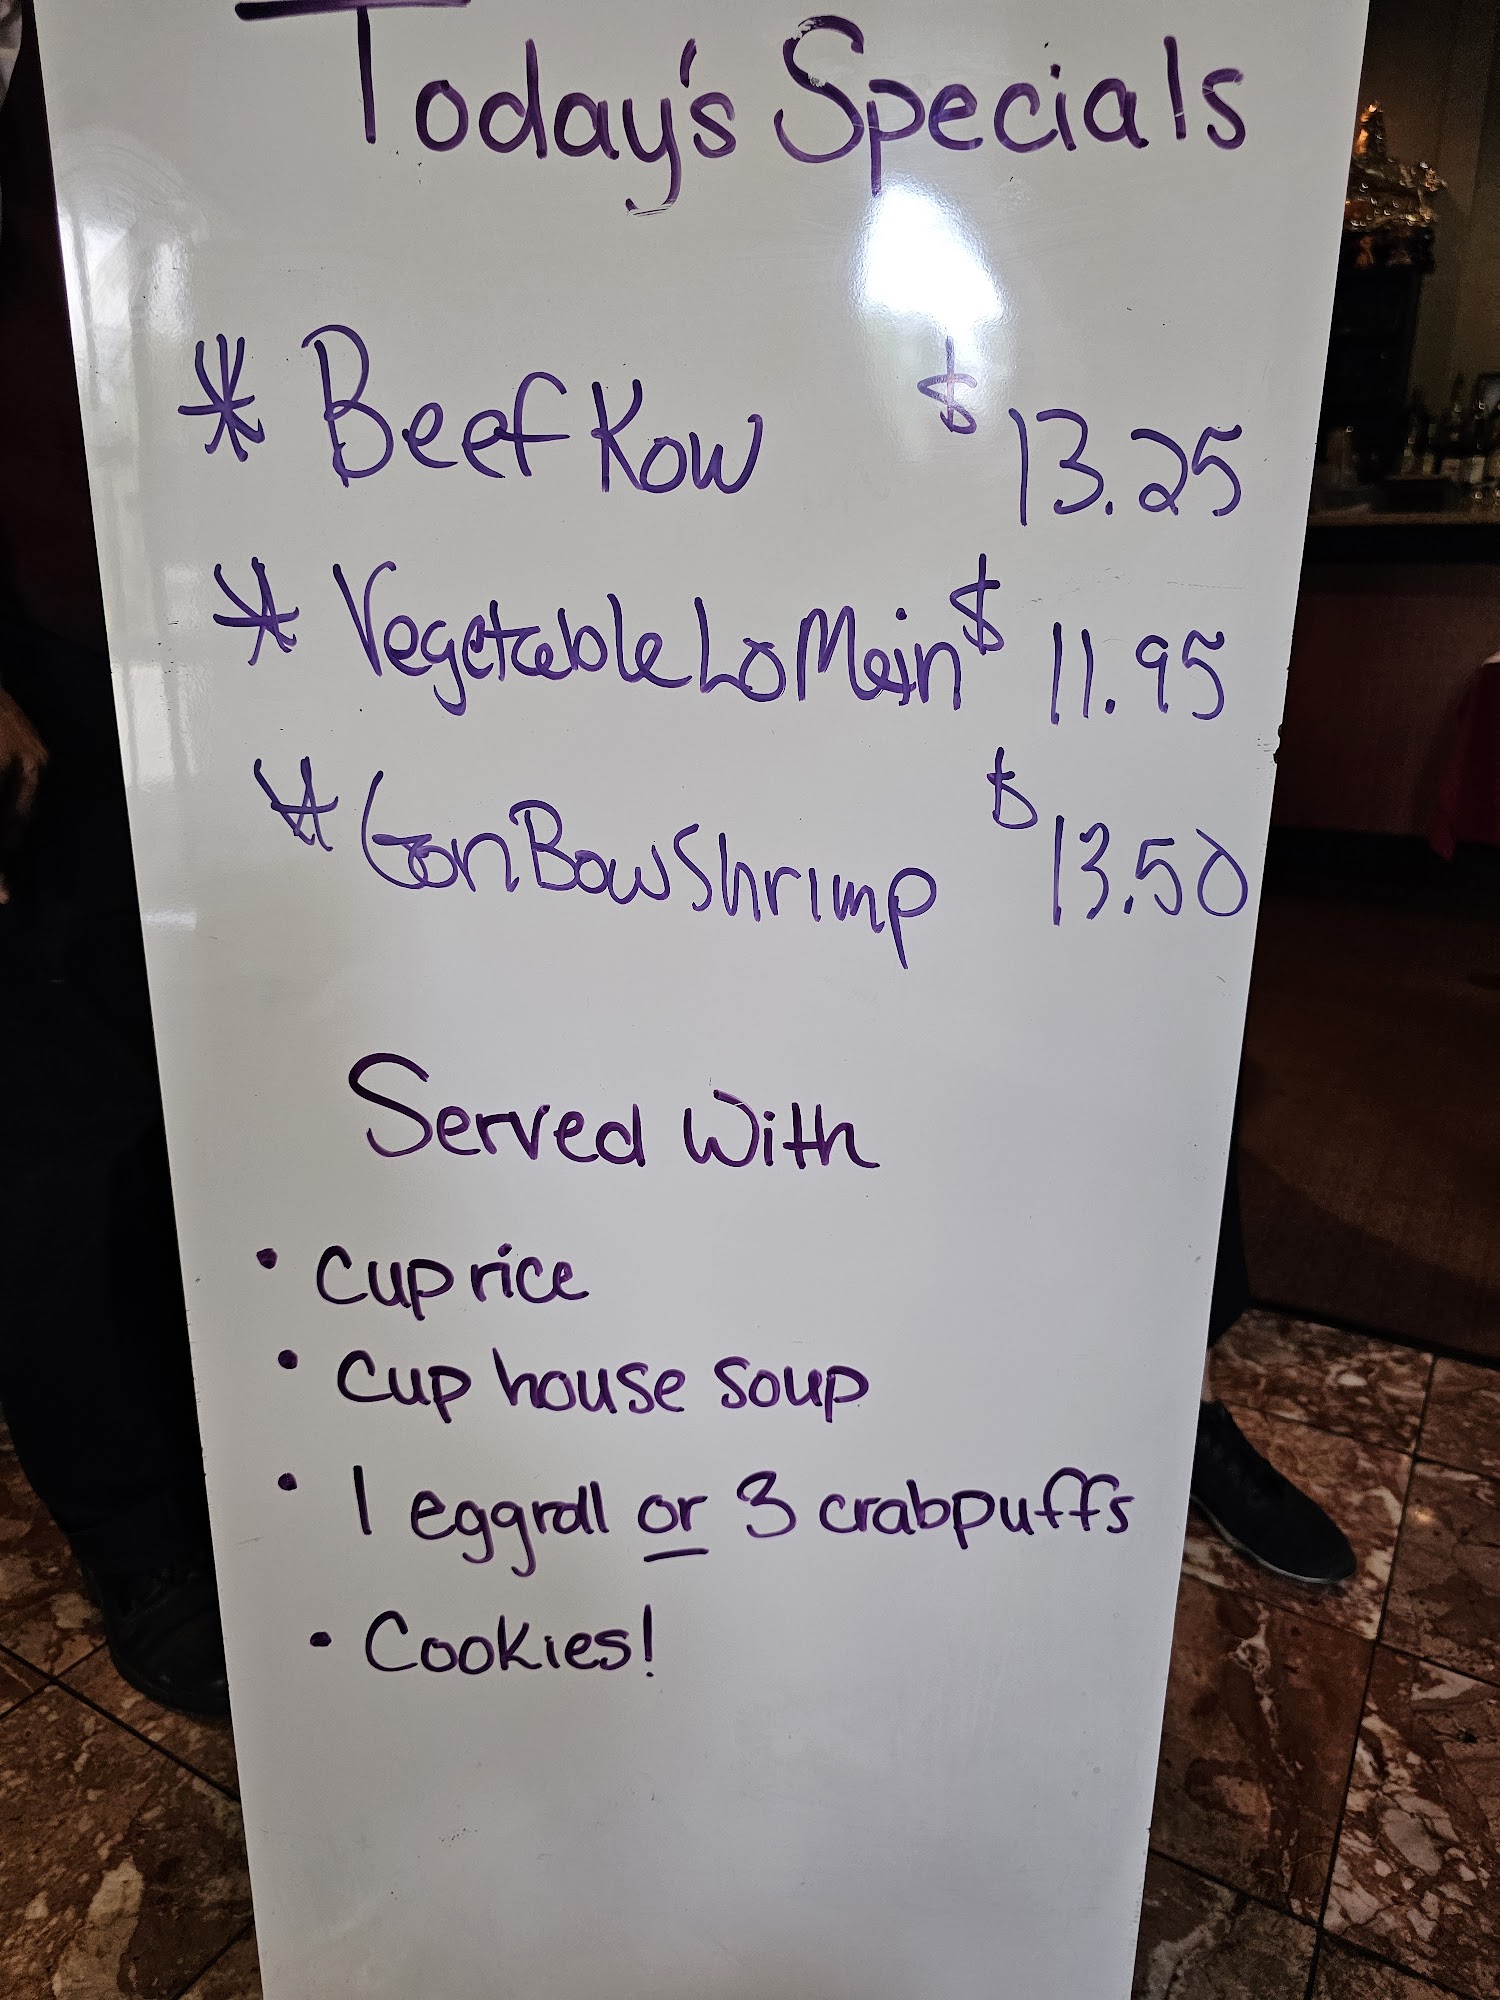 Today's Specials
* Beef Kow $13.25
* Vegetable Lo Mein $11.95
* Gon Bow Shrimp $13.50
Served With
• Cup rice
• Cup house soup
• 1 eggroll or 3 crabpuffs
• Cookies!